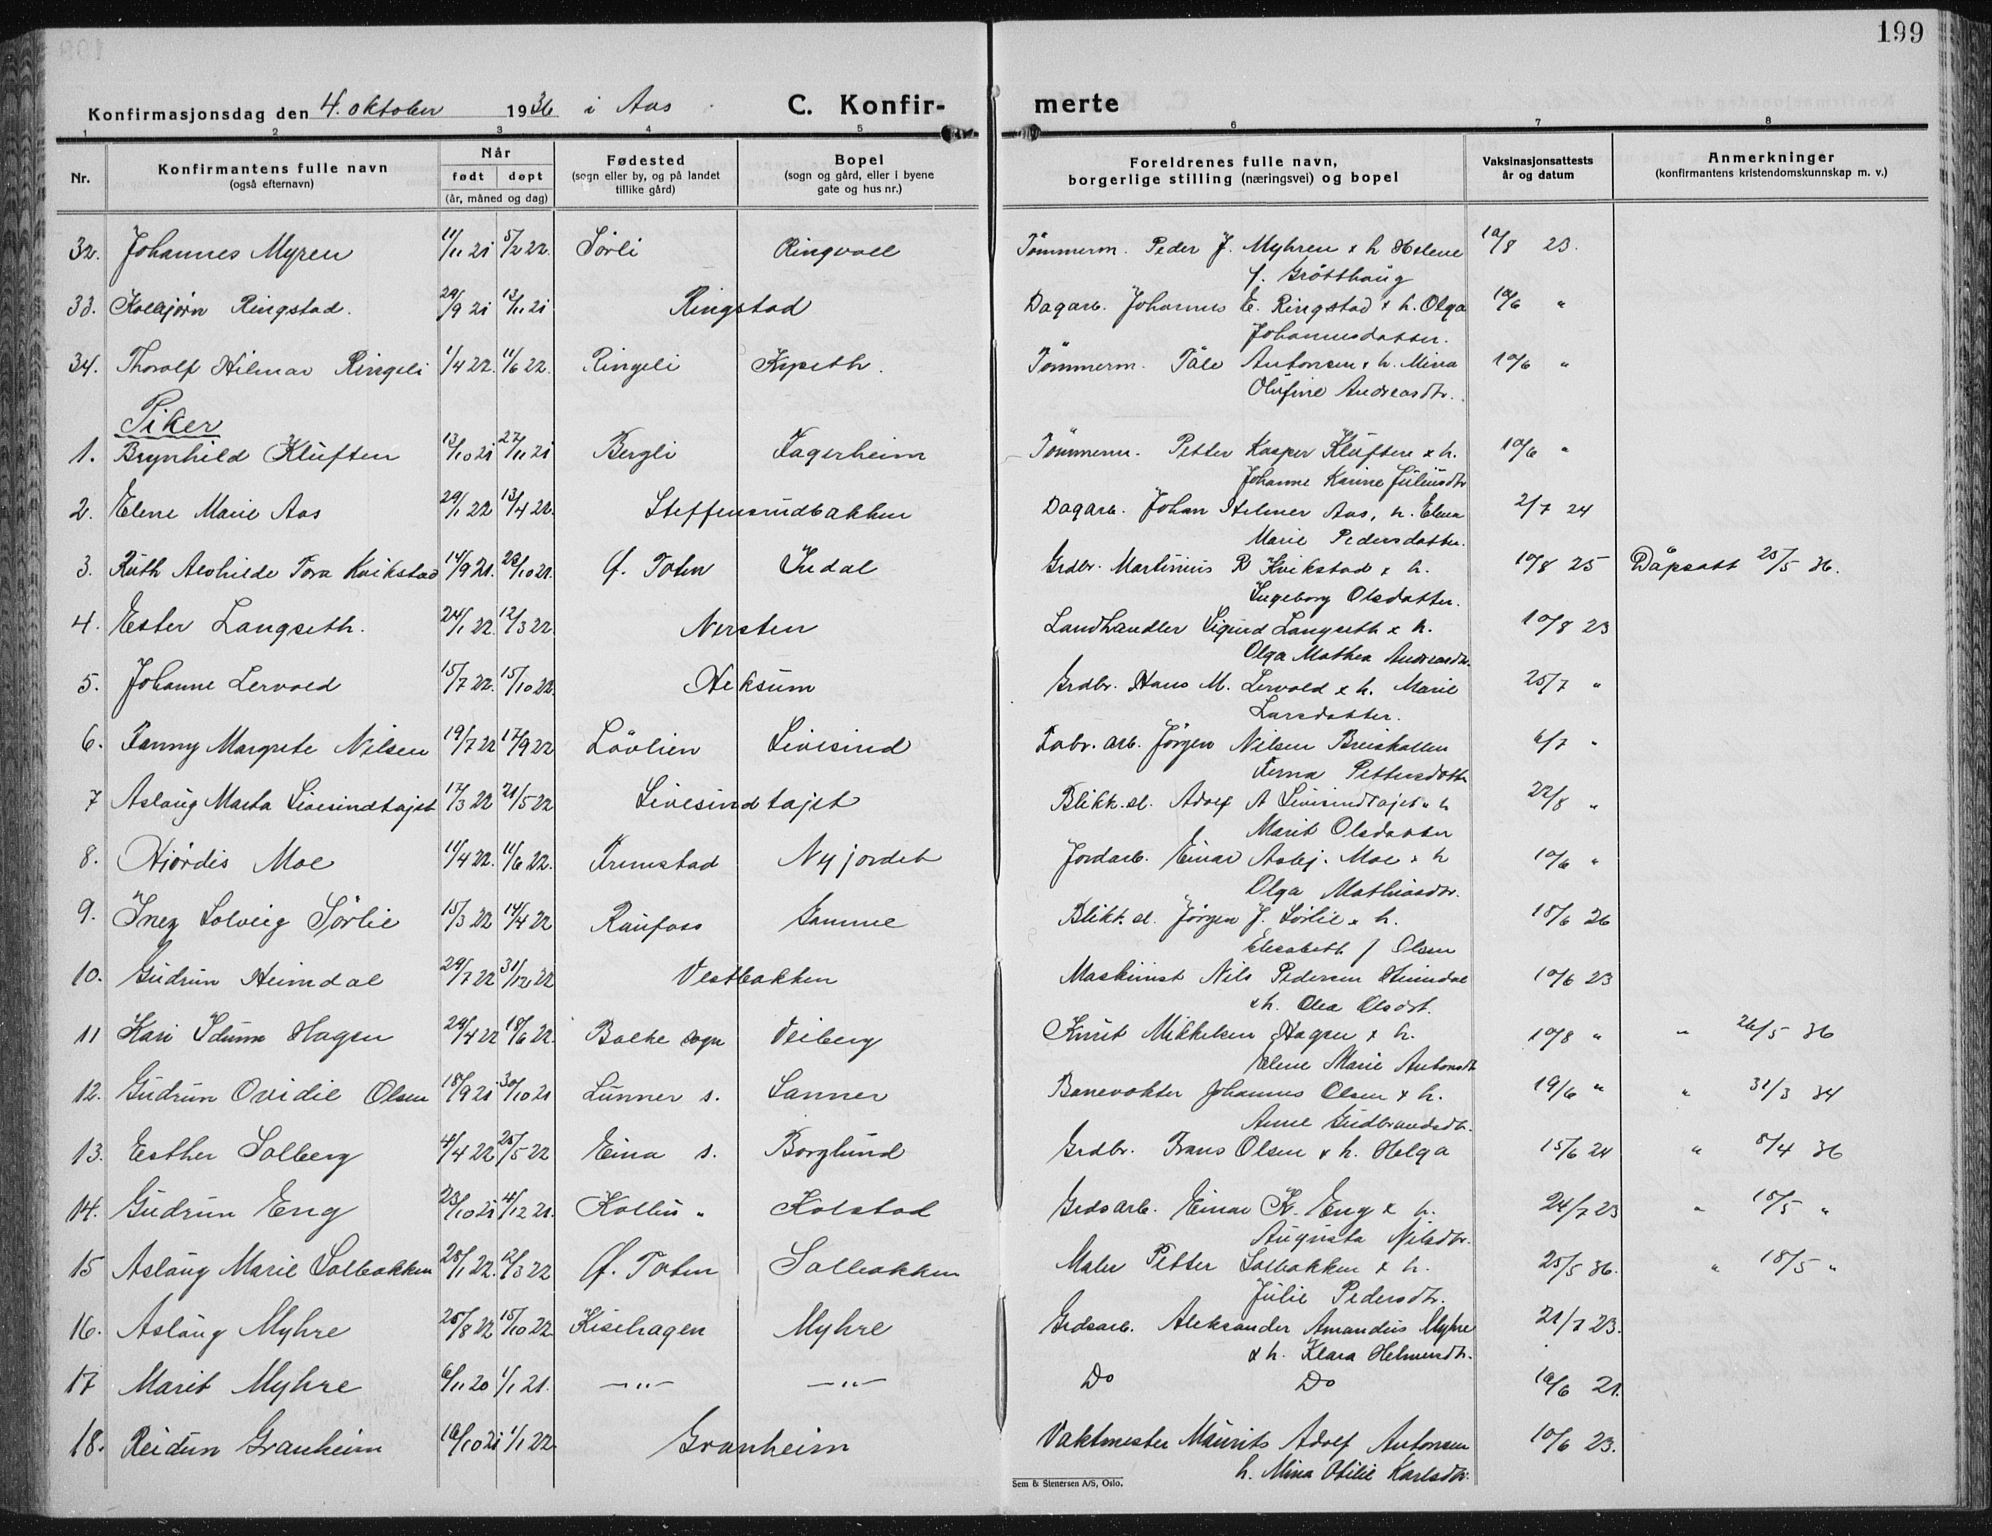 199
Konfirmasjonsdag den 4. oktober 1936 i Aas. C. Konfir- merte
1 2 3 4 5 6 7 8
Nr. Konfirmantens fulle navn (også efternavn) Når født døpt (år, måned og dag) Fødested (sogn eller by, og på landet tillike gård) Bopel (sogn og gård, eller i byene gate og hus nr.) Foreldrenes fulle navn, borgerlige stilling (næringsvei) og bopel Vaksinasjonsattests år og datum Anmerkninger (konfirmantens kristendomskunnskap m. v.)
32. Johannes Myren 11/11 21 5/2 22. Sørli Ringvoll Tømmerm. Peder J. Myhren & h Helene 10/8 23.
f. Grøtthaug
33. Kolbjørn Ringstad. 29/9 21 13/11 21 Ringstad Dagarb. Johannes E. Ringstad & h. Olga 10/6 "
Johannesdatter.
34. Thorolf Hilmar Ringeli 1/4 22. 11/6 22. Ringeli Kypeth. Tømmerm. Påle Antonsen & h. Mina 10/6 "
Olufine Andreasdtr.
Piker
1. Brynhild Kluften 13/10 21 27/11 21 Bergli Fagerheim Tømmerm. Petter Kasper Kluften & h. 10/6 "
Johanne Karine Juliusdtr
2. Elene Marie Aas 29/1 22 13/4 22. Steffensrudbakken Dagarb. Johan Helmer Aas, h. Elena 2/7 24
Marie Pedersdatter.
3. Ruth Alvhilde Tora Kvikstad 14/9 21. 22/10 21. Ø. Toten Kudal Grdbr. Martinius R Kvikstad & h. 10/8 25 Dåpsatt 25/5 36.
Ingeborg Olsdatter.
4. Ester Langseth. 24/1 22. 12/3 22. Nersten Landhandler Sigurd Langseth & h. 10/8 23
Olga Mathea Andreasdtr.
5. Johanne Lervold 15/7 22. 15/10 22. Heksum Grdbr. Hans M. Lervold & h. Marie 25/7 "
Larsdatter.
6. Fanny Margrete Nilsen 19/7 22 17/9 22 Løvlien Sivesind Fabr. arb. Jørgen Nilsen Breiskallen 6/7 "
Ferna Pettersdatter
7 Aslaug Marta Sivesindtajet 17/3 22 21/5 22 Sivesindtajet Blikk.sl. Adolf A Sivesindtajet " h 22/8 "
Marit Olsdatter
8. Hjørdis Moe 11/4 22. 11/6 22. Frimstad Nyjordet Jordarb. Einar Asbj. Moe & h 10/6 "
Olga Mathiasdtr.
9. Inez Solveig Sørlie 15/3 22 14/4 22 Raufoss Samme Blikk.sl. Jørgen J. Sørlie & h. 18/6 26
Elisabeth f Olsen
10. Gudrun Heimdal 29/7 22 31/12 22 Vestbakken Maskinist Nils Pedersen Heimdal 10/6 23
& h. Olea Olsdt.
11 Kari Idunn Hagen 29/4 22 18/6 22. Balke sogn Veiberg Knut Mikkelsen Hagen & h. 10/8 " " 26/5 36
Elene Marie Antonsdt
12. Gudrun Ovidie Olsen 18/9 21. 30/10 21 Lunner s. Sanner Banevokter Johannes Olsen & h. 19/6 " " 31/3 34
Anne Gudbrandsdtr.
13. Esther Solberg 4/4 22 25/5 22 Eina s. Borglund Grdbr. Frans Olsen & h. Helga 15/6 24 " 8/4 36
14. Gudrun Eng 23/10 21 4/12 21. Kolbu " Kolstad Grdsarb. Einar K. Eng & h. 24/7 23 " 18/5 "
Augusta Nilsdtr.
15 Aslaug Marie Solbakken 28/1 22. 12/3 22 Ø. Toten Solbakken Maler Petter Solbakken & h. 25/5 36. " 18/5 "
Julie Pedersdtr.
16. Aslaug Myhre 25/8 22 15/10 22. Kisehagen Myhre Grdsarb. Aleksander Amandus Myhre 21/7 23.
& h. Klara Helmersdtr.
17 Marit Myhre 6/11 20 1/1 21. —"— —"— Do Do 10/6 21.
18. Reidun Granheim 16/10 21 1/1 22. Granheim Vaktmester Maurits Adolf Antonsen 10/6 23.
h. Mina Otilie Karlsdtr.
Sem & Stenersen A/S, Oslo.